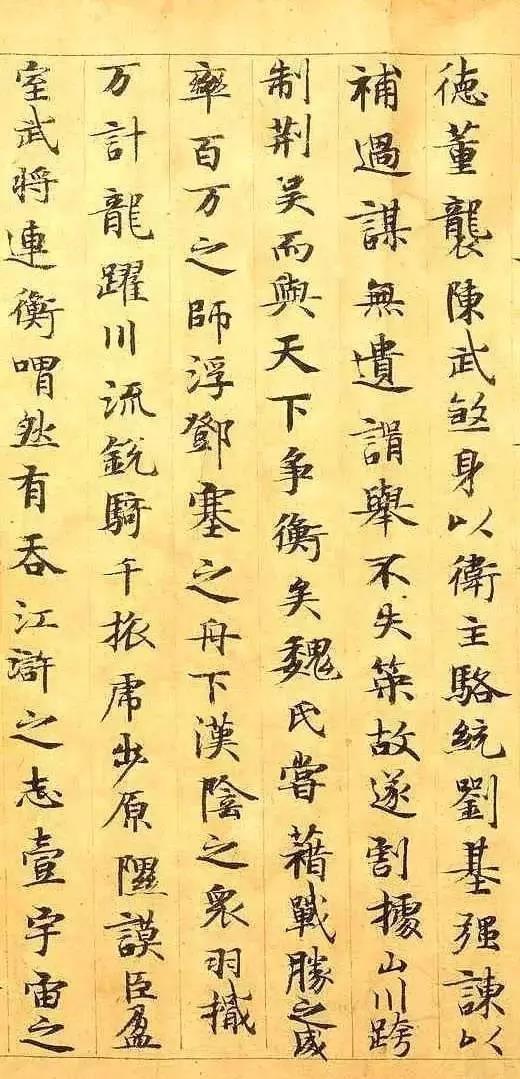 徳董襲陳武煞身以衛主駱統劉基强諫以
補過謀無遺諝舉不失筞故遂割據山川跨
制荆吴而與天下争衡矣魏氏嘗藉戰勝之威
率百万之師浮鄧塞之舟下漢陰之衆羽檝
万計龍躍川流鋭騎千旅虎步原隰謨臣盈
室武将連衡喟然有吞江滸之志壹宇宙之